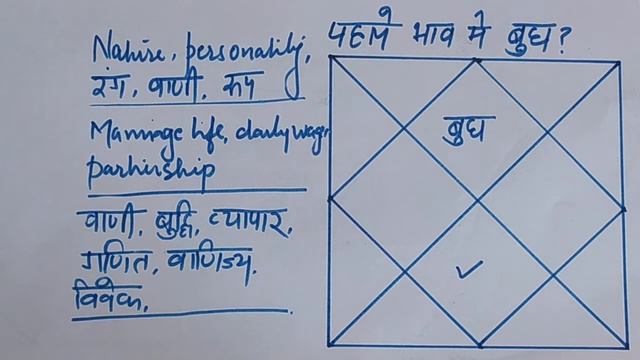 पहले भाव मे बुध?
Nature, personality,
रंग, वाणी, रूप
Marriage life, daily wage,
partnership
वाणी, बुद्धि, व्यापार,
गणित, वाणिज्य,
विवेक,
बुध